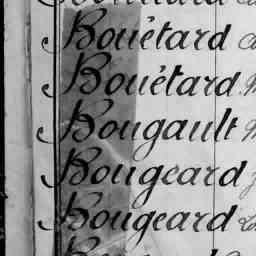 Bouétard
Bouétard
Bougault
Bougeard
Bougeard